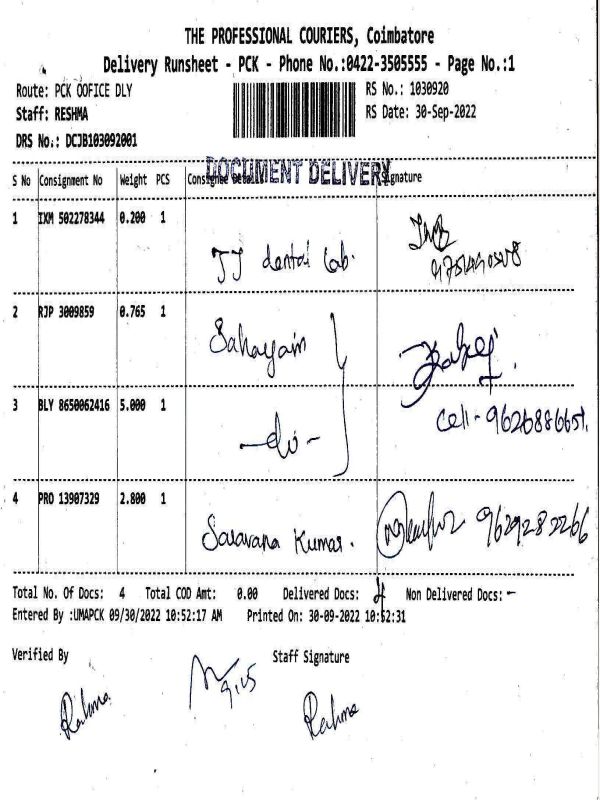 THE PROFESSIONAL COURIERS, Coimbatore
Delivery Runsheet - PCK - Phone No.:0422-3505555 - Page No.:1
Route: PCK OOFICE DLY RS No.: 1030920
Staff: RESHMA RS Date: 30-Sep-2022
DRS No.: DCJB103092001
DOCUMENT DELIVERY
S No Consignment No Weight PCS Consignee Detail Signature
1 IXM 502278344 0.200 1
JJ dental Lab.
2 RJP 3009859 0.765 1
Sahayam
3 BLY 8650062416 5.000 1
-do-
Cell - 9626886651.
4 PRO 13907329 2.800 1
Saravana Kumar. 9629282266
Total No. Of Docs: 4 Total COD Amt: 0.00 Delivered Docs: 4 Non Delivered Docs: -
Entered By :UMAPCK 09/30/2022 10:52:17 AM Printed On: 30-09-2022 10:52:31
Verified By Staff Signature